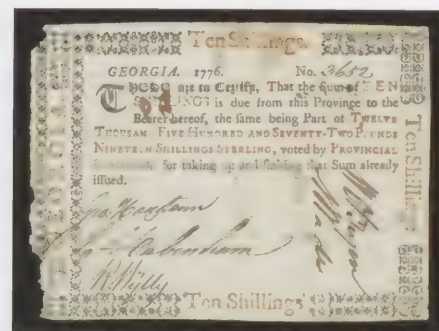 Ten Shillings.
GEORGIA. 1776. No. 3652
THESE are to Certify, That the Sum of TEN
SHILLINGS is due from this Province to the
Bearer hereof, the same being Part of TWELVE
THOUSAN FIVE HUNDRED AND SEVENTY-TWO POUNDS
NINETEEN SHILLINGS STERLING, voted by PROVINCIAL
for taking up and sinking that Sum already
issued.
Wylly
Ten Shillings
Ten Shillings
GEORGIA